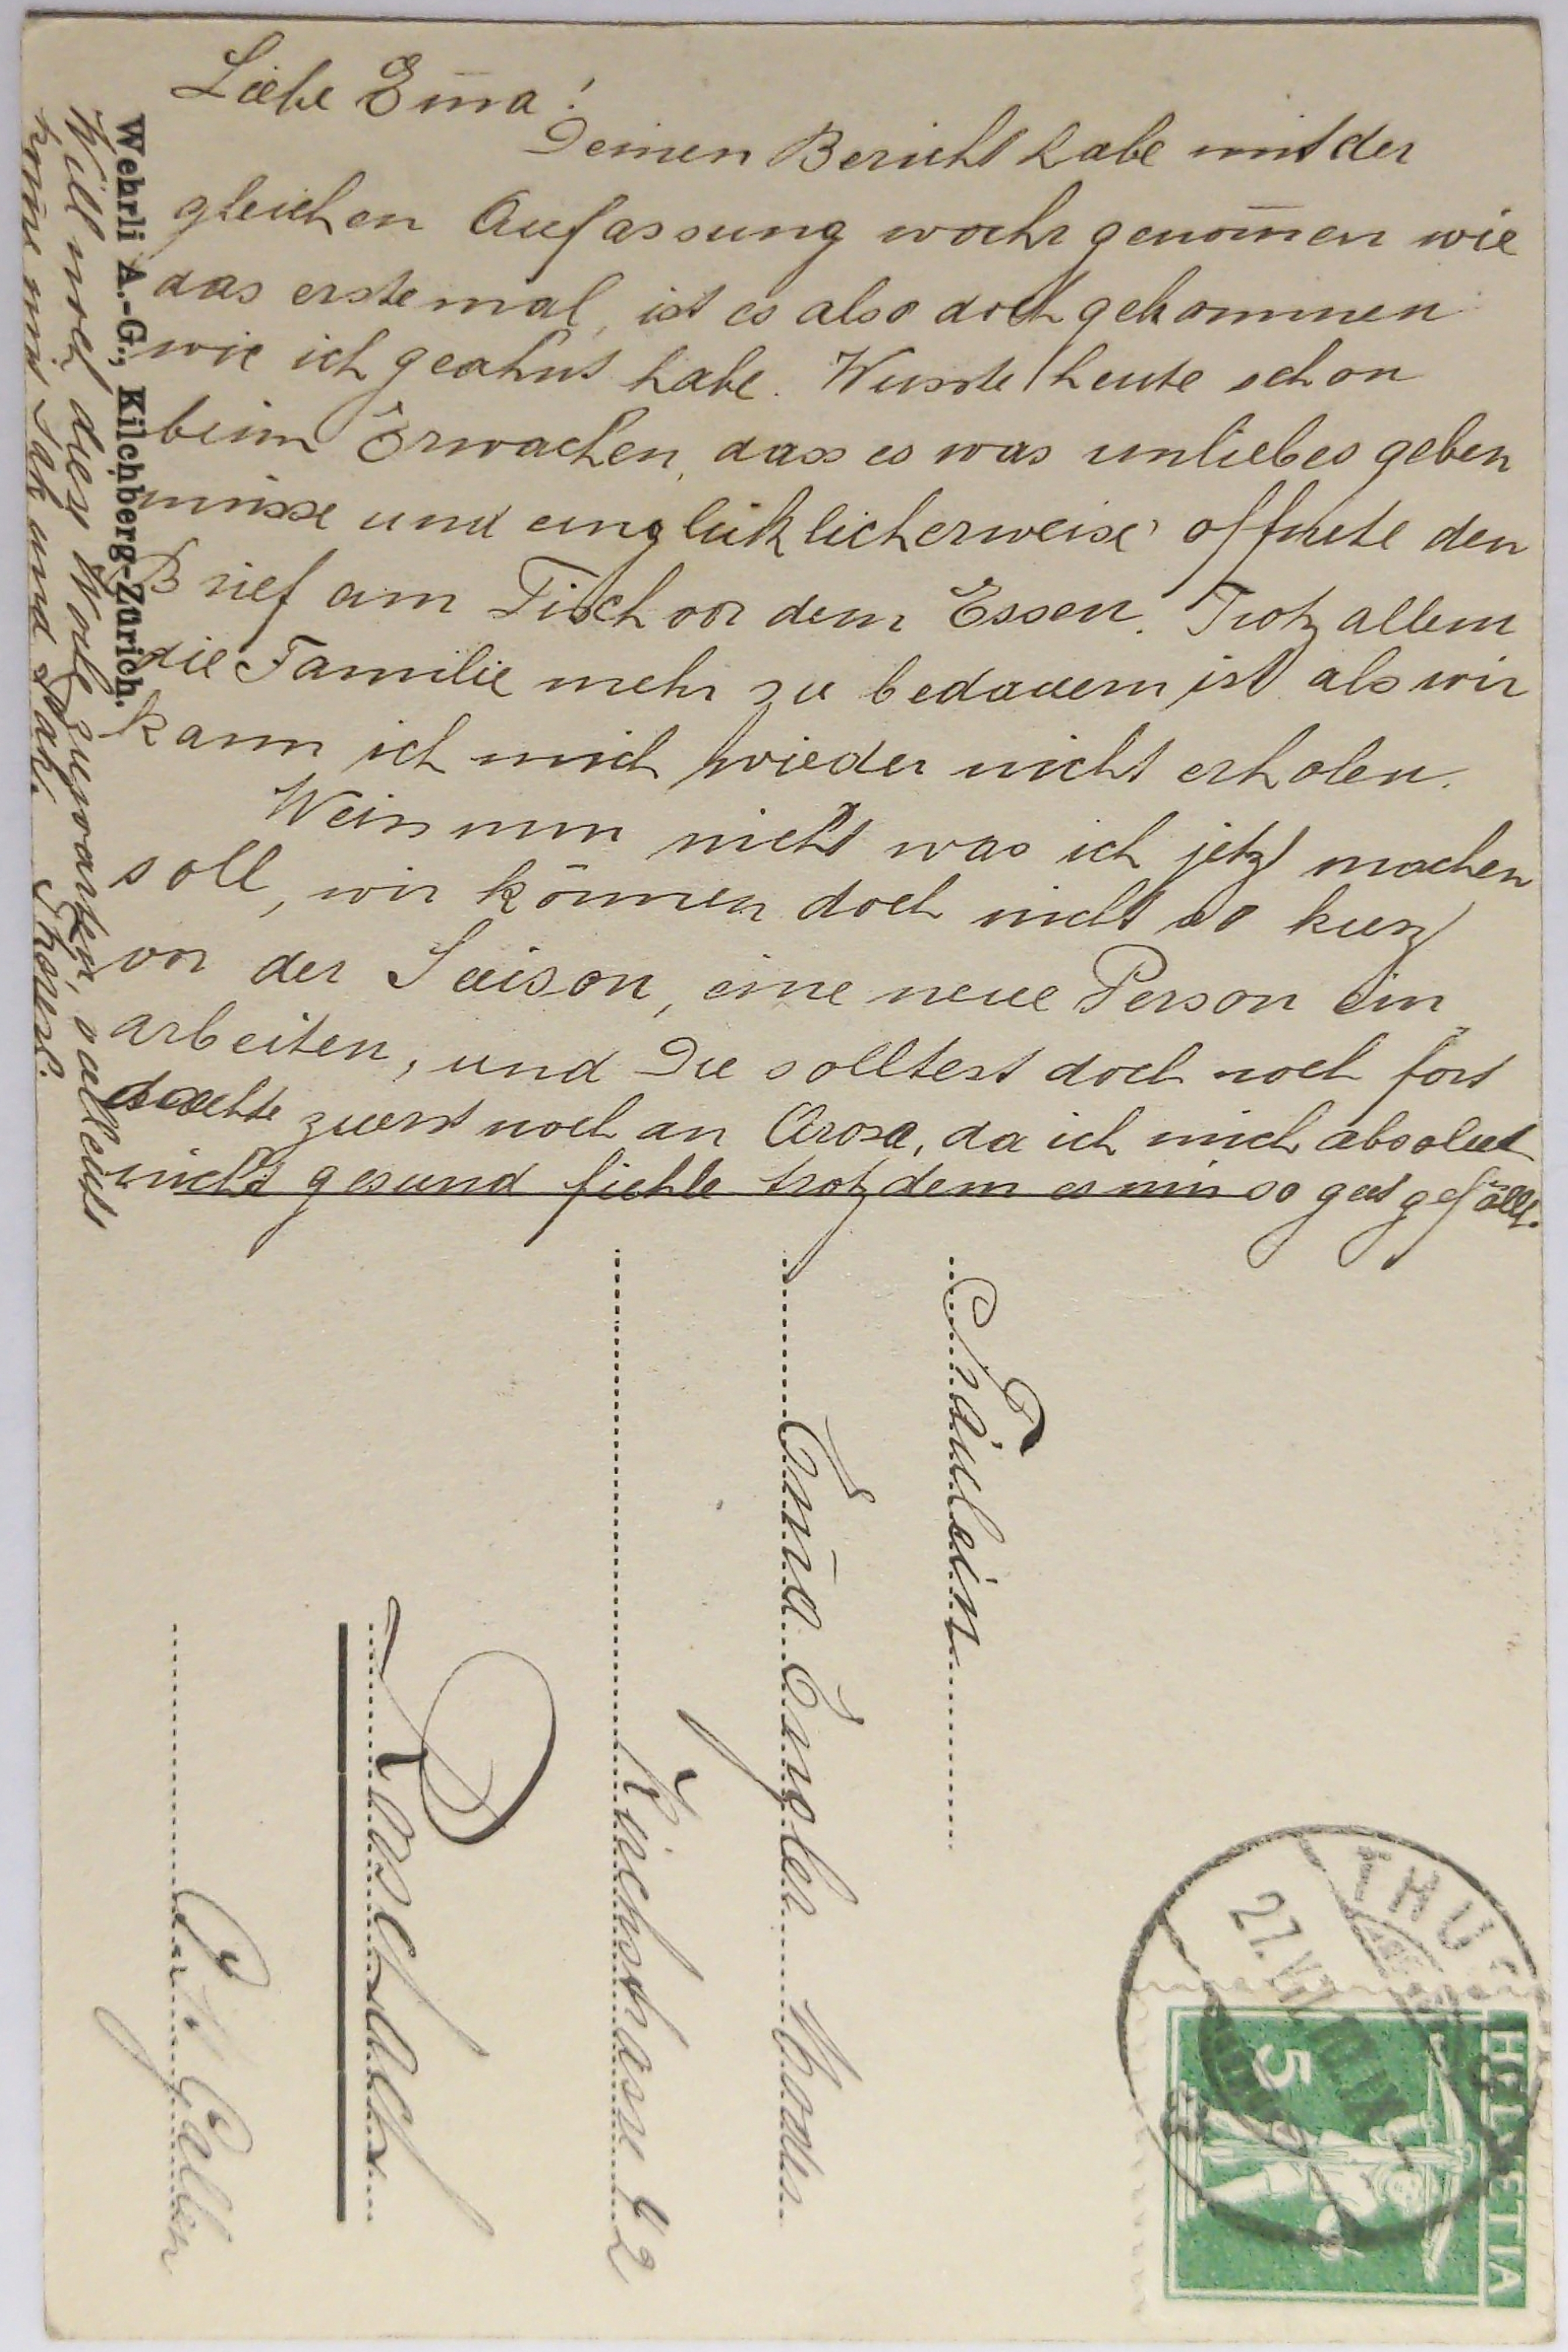 Liebe Em̄a!
Deinen Bericht habe mit der
gleichen Auffassung wahr genom̄en wie
das erste mal, ist es also doch gekommen
wie ich geahnt habe. Wusste heute schon
beim Erwachen, dass es was unliebes geben
müsse und unglüklicherweise öffnete den
Brief am Tisch vor dem Essen. Trotz allem
die Familie mehr zu bedauern ist als wir
kann ich mich wieder nicht erholen.
Weiss nun nicht was ich jetzt machen
soll, wir können doch nicht so kurz
vor der Saison, eine neue Person ein
arbeiten, und Du solltest doch noch fort
dachte zuerst noch an Arosa, da ich mich absolut
nicht gesund fühle trotzdem es mir so gut gefällt.
Will noch dein Wort zuwarten, sallents
kom̄e mit Sak und Pak.
Wehrli A.-G., Kilchberg-Zürich.
Fräulein
Em̄a Engler Moden
Kirchstrasse 42
Rorschach
Ct. St. Gallen
THUSIS
27. VI.
HELVETIA
5